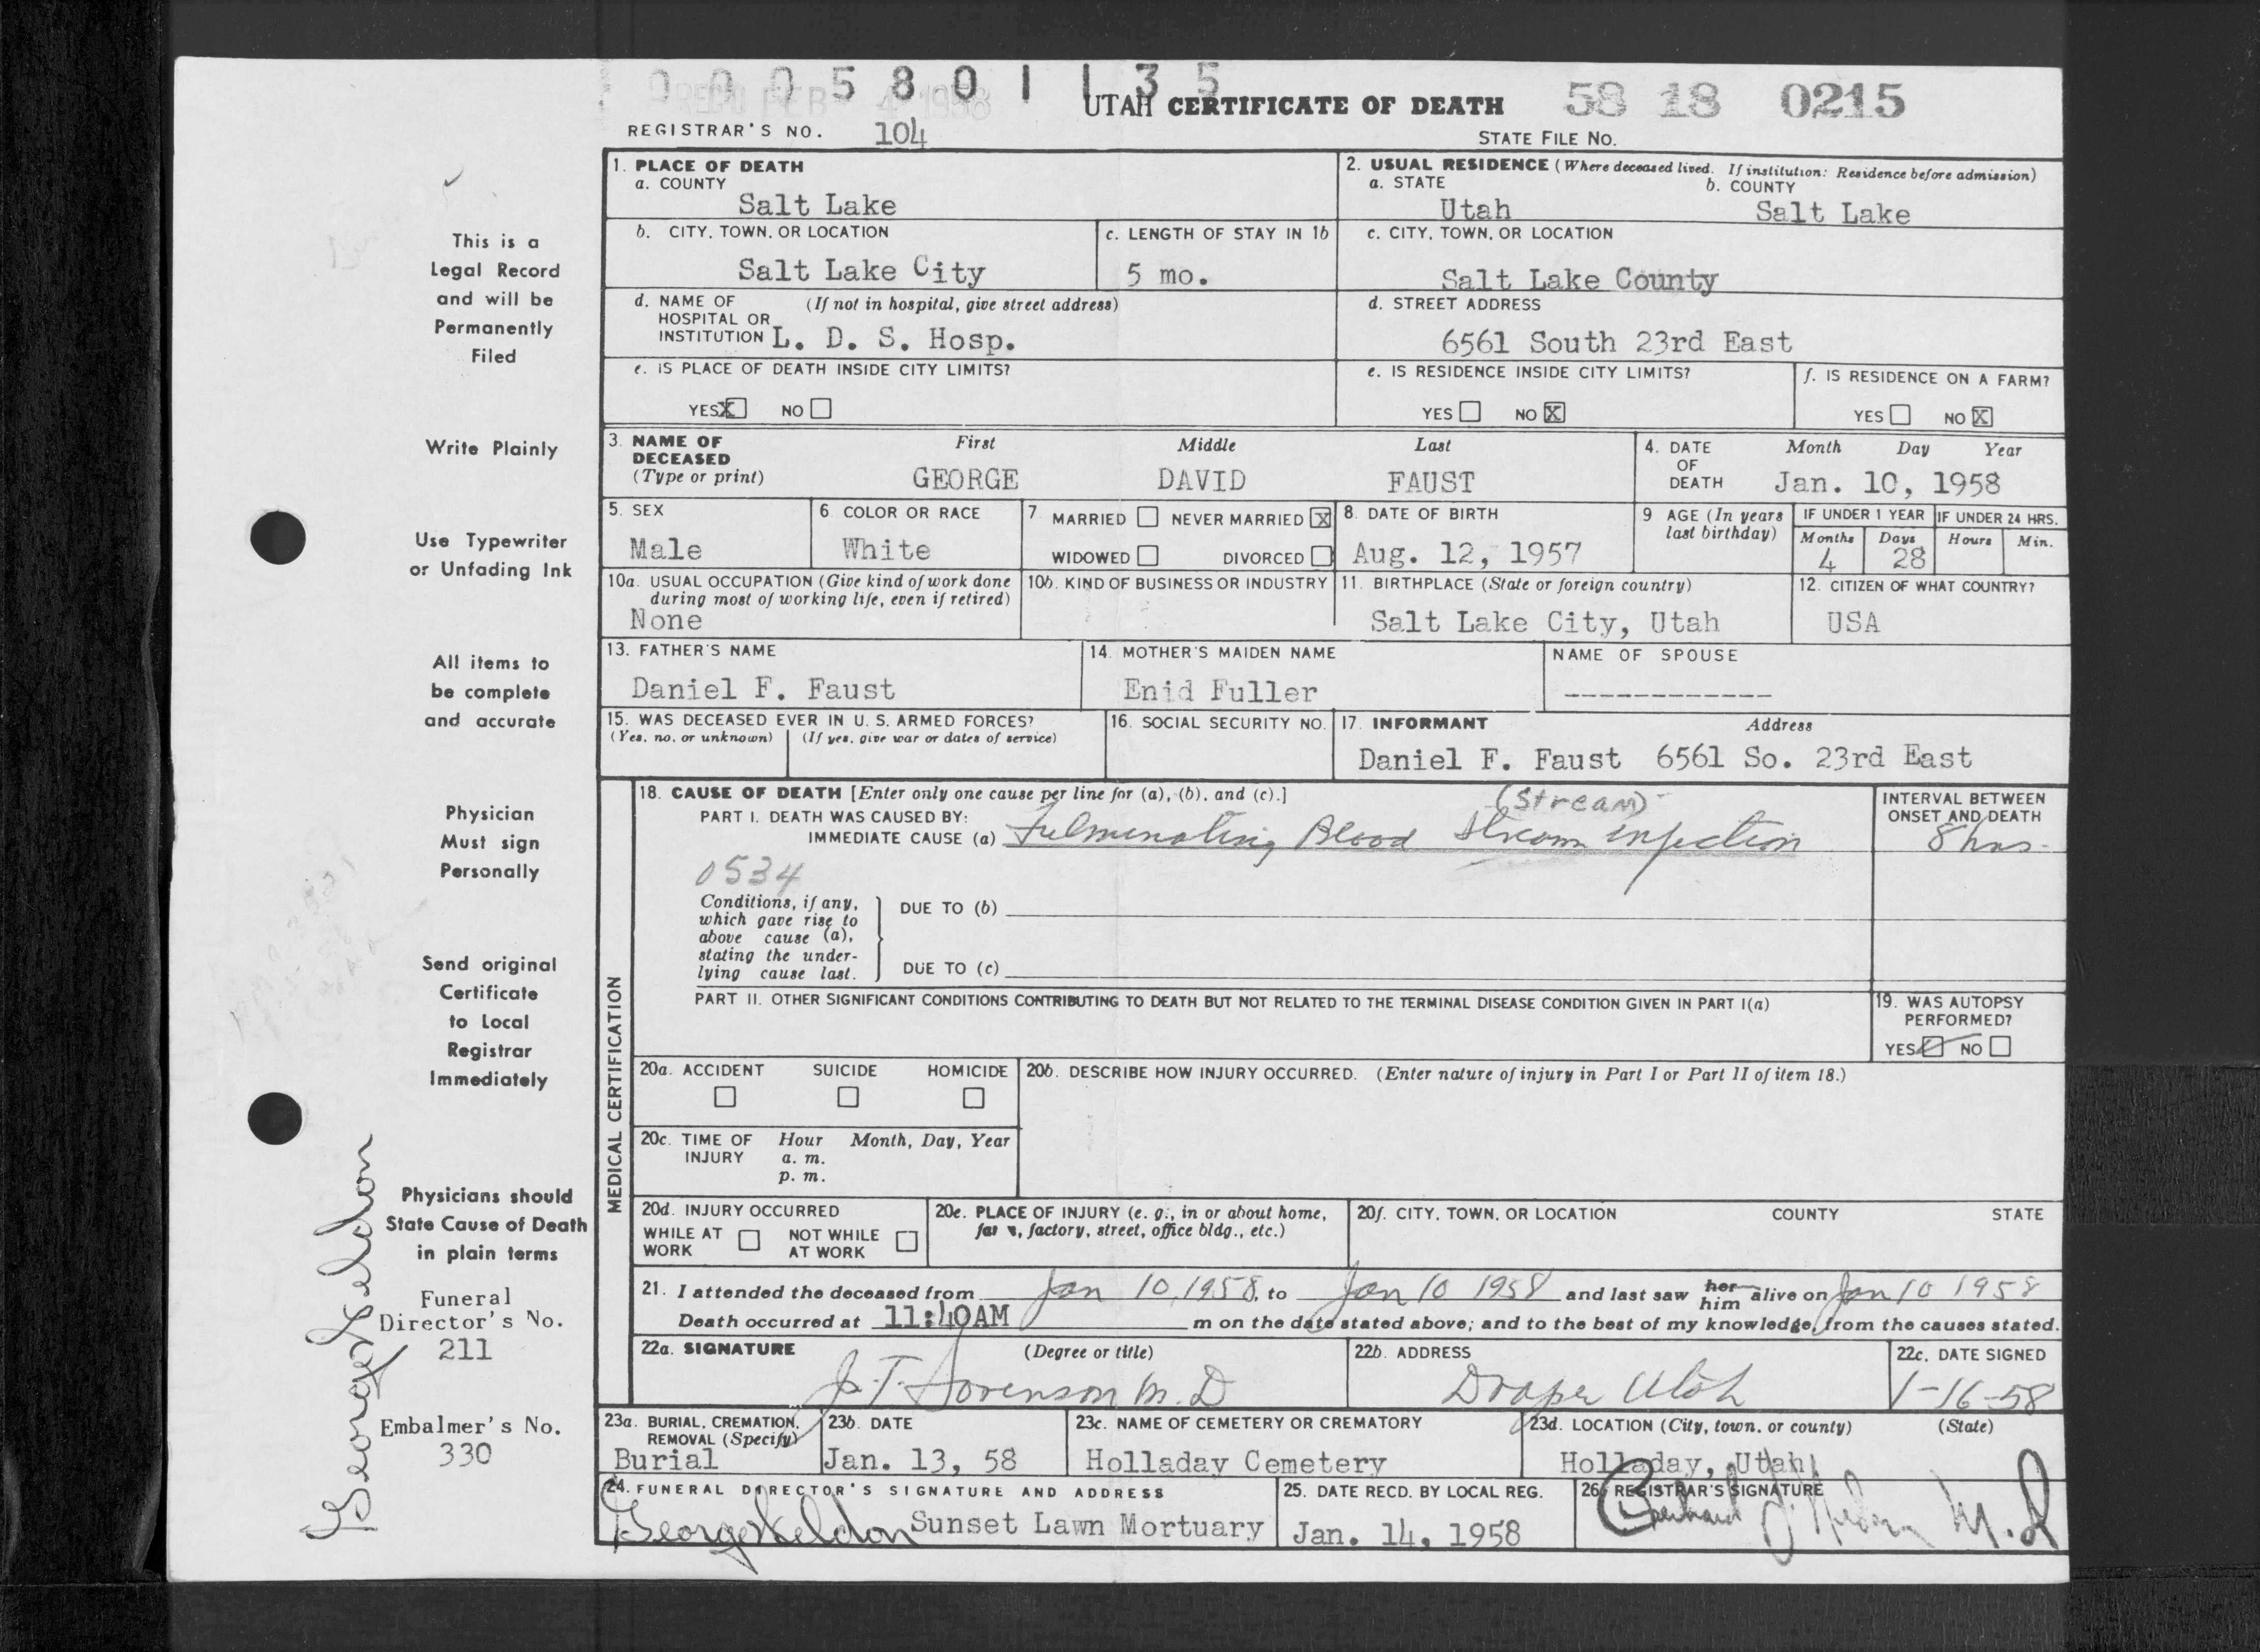 0 0 0 5 8 0 1 1 3 5
REC'D FEB 4 1958
UTAH CERTIFICATE OF DEATH 58 18 0215
REGISTRAR'S NO. 104 STATE FILE No.
1. PLACE OF DEATH
a. COUNTY
Salt Lake
2. USUAL RESIDENCE (Where deceased lived. If institution: Residence before admission)
a. STATE b. COUNTY
Utah Salt Lake
b. CITY, TOWN, OR LOCATION
Salt Lake City
c. LENGTH OF STAY IN 1b
5 mo.
c. CITY, TOWN, OR LOCATION
Salt Lake County
d. NAME OF (If not in hospital, give street address)
HOSPITAL OR
INSTITUTION L. D. S. Hosp.
d. STREET ADDRESS
6561 South 23rd East
e. IS PLACE OF DEATH INSIDE CITY LIMITS?
YES X NO
e. IS RESIDENCE INSIDE CITY LIMITS?
YES NO X
f. IS RESIDENCE ON A FARM?
YES NO X
3. NAME OF DECEASED (Type or print) First Middle Last
GEORGE DAVID FAUST
4. DATE OF DEATH Month Day Year
Jan. 10, 1958
5. SEX
Male
6 COLOR OR RACE
White
7 MARRIED NEVER MARRIED X
WIDOWED DIVORCED
8. DATE OF BIRTH
Aug. 12, 1957
9 AGE (In years
last birthday)
IF UNDER 1 YEAR IF UNDER 24 HRS.
Months Days Hours Min.
4 28
10a. USUAL OCCUPATION (Give kind of work done
during most of working life, even if retired)
None
10b. KIND OF BUSINESS OR INDUSTRY
11. BIRTHPLACE (State or foreign country)
Salt Lake City, Utah
12. CITIZEN OF WHAT COUNTRY?
USA
13. FATHER'S NAME
Daniel F. Faust
14. MOTHER'S MAIDEN NAME
Enid Fuller
NAME OF SPOUSE
------------
15. WAS DECEASED EVER IN U. S. ARMED FORCES?
(Yes, no, or unknown) (If yes, give war or dates of service)
16. SOCIAL SECURITY NO.
17. INFORMANT Address
Daniel F. Faust 6561 So. 23rd East
MEDICAL CERTIFICATION
18. CAUSE OF DEATH [Enter only one cause per line for (a), (b), and (c).]
PART I. DEATH WAS CAUSED BY: (Stream)
IMMEDIATE CAUSE (a) Fulminating Blood Stream infection
INTERVAL BETWEEN
ONSET AND DEATH
8 hrs.
0534
Conditions, if any,
which gave rise to
above cause (a),
stating the under-
lying cause last.
DUE TO (b)
DUE TO (c)
PART II. OTHER SIGNIFICANT CONDITIONS CONTRIBUTING TO DEATH BUT NOT RELATED TO THE TERMINAL DISEASE CONDITION GIVEN IN PART I(a)
19. WAS AUTOPSY
PERFORMED?
YES NO
20a. ACCIDENT SUICIDE HOMICIDE
20b. DESCRIBE HOW INJURY OCCURRED. (Enter nature of injury in Part I or Part II of item 18.)
20c. TIME OF INJURY Hour Month, Day, Year
a. m.
p. m.
20d. INJURY OCCURRED
WHILE AT WORK NOT WHILE AT WORK
20e. PLACE OF INJURY (e. g., in or about home,
farm, factory, street, office bldg., etc.)
20f. CITY, TOWN, OR LOCATION COUNTY STATE
21. I attended the deceased from Jan 10, 1958, to Jan 10 1958 and last saw her him alive on Jan 10 1958
Death occurred at 11:40AM m on the date stated above; and to the best of my knowledge, from the causes stated.
22a. SIGNATURE (Degree or title)
J. T. Sorenson M. D
22b. ADDRESS
Draper Utah
22c. DATE SIGNED
1-16-58
23a. BURIAL, CREMATION,
REMOVAL (Specify)
Burial
23b. DATE
Jan. 13, 58
23c. NAME OF CEMETERY OR CREMATORY
Holladay Cemetery
23d. LOCATION (City, town, or county) (State)
Holladay, Utah
24. FUNERAL DIRECTOR'S SIGNATURE AND ADDRESS
George Weldon Sunset Lawn Mortuary
25. DATE RECD. BY LOCAL REG.
Jan. 14, 1958
26. REGISTRAR'S SIGNATURE
M. D
This is a
Legal Record
and will be
Permanently
Filed
Write Plainly
Use Typewriter
or Unfading Ink
All items to
be complete
and accurate
Physician
Must sign
Personally
Send original
Certificate
to Local
Registrar
Immediately
Physicians should
State Cause of Death
in plain terms
Funeral
Director's No.
211
Embalmer's No.
330
George Weldon